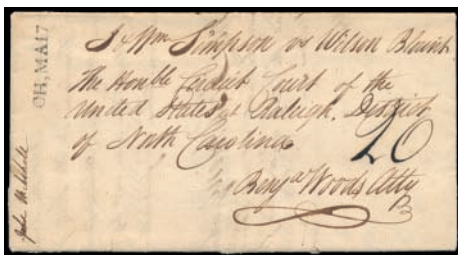 J & Wm Simpson vs Wilson Blount
The Honble Circuit Court of the
United States at Raleigh, District
of North Carolina
20
Benja Woods Atty
CH, MA 17